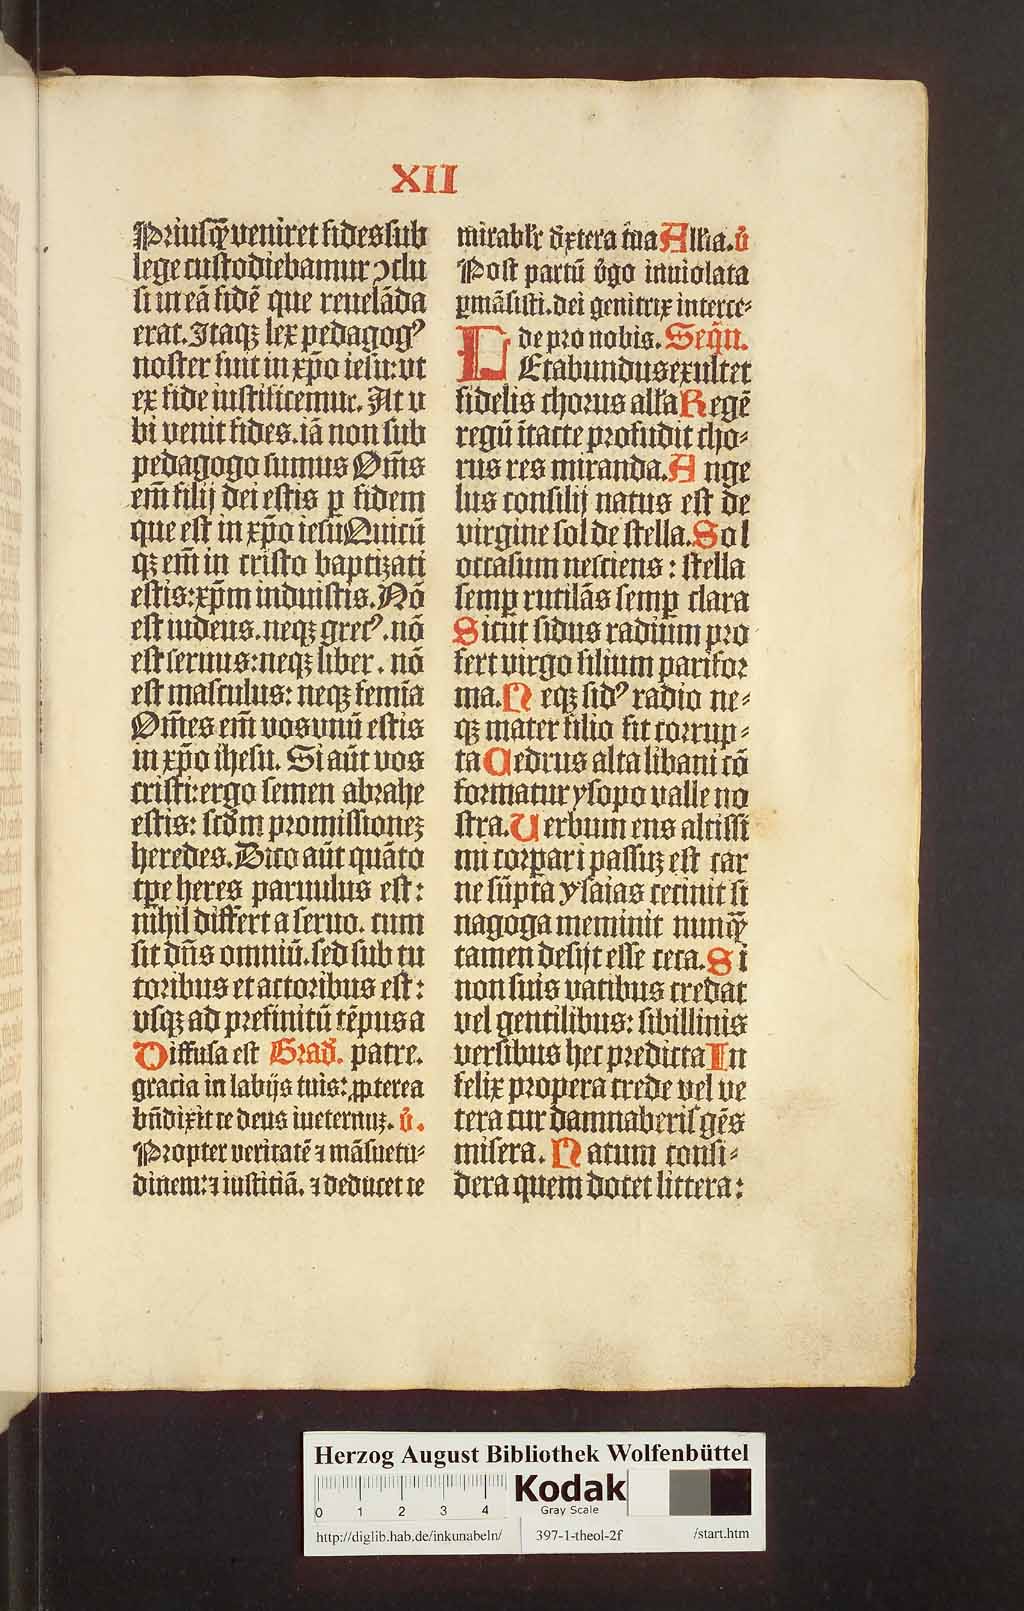 XII
Priusꝙ̃ veniret fides sub
lege custodiebamur ↄclu
si in eā fidē que reuelāda
erat. Itaqꝫ lex pedagogꝰ
noster fuit in xp̄o iesu: vt
ex fide iustificemur. At v
bi venit fides. iā non sub
pedagogo sumus Om̄s
em̄ filij dei estis ꝑ fidem
que est in xp̄o iesu Quicū
qꝫ em̄ in cristo baptizati
estis: xp̄m induistis. Nō
est iudeus. neqꝫ grecꝰ. nō
est seruus: neqꝫ liber. nō
est masculus: neqꝫ femīa
Om̄es em̄ vos vnū estis
in xp̄o ihesu. Si aūt vos
cristi: ergo semen abrahe
estis: scd̄m promissionez
heredes. Dico aūt quāto
tp̄e heres paruulus est:
nīhil differt a seruo. cum
sit dn̄s omniū. sed sub tu
toribus et actoribus est:
vsqꝫ ad prefinitū tēpus a
Diffusa est Grad̄. patre.
gracia in labijs tuis: ꝓpterea
bn̄dixit te deus ineternuꝫ. v̄.
Propter veritatē ⁊ māsuetu-
dinem: ⁊ iustitiā. ⁊ deducet te
mirabl'r dx̄tera tua All'ia. v̄
Post partū v̄go inuiolata
ꝑmāsisti. dei genitrix interce-
de pro nobis. Seq̄n.
LEtabundus exultet
fidelis chorus all'a Regē
regū ītacte profudit tho-
rus res miranda. Ange
lus consilij natus est de
virgine sol de stella. Sol
occasum nesciens: stella
semꝑ rutilās semꝑ clara
Sicut sidus radium pro
fert virgo filium pari for
ma. Neqꝫ sidꝰ radio ne-
qꝫ mater filio fit corrup-
ta Cedrus alta libani cō
formatur ysopo valle no
stra. Verbum ens altissi
mi corpari passuꝫ est car
ne sūpta ysaias cecinit si
nagoga meminit nunꝙ̃
tamen desijt esse ceca. Si
non suis vatibus credat
vel gentilibus: sibillinis
versibus hec predicta In
felix propera crede vel ve
tera cur damnaberis gēs
misera. Natum consi-
dera quem docet littera:
Herzog August Bibliothek Wolfenbüttel
0 1 2 3 4
Kodak
Gray Scale
http://diglib.hab.de/inkunabeln/ 397-1-theol-2f /start.htm